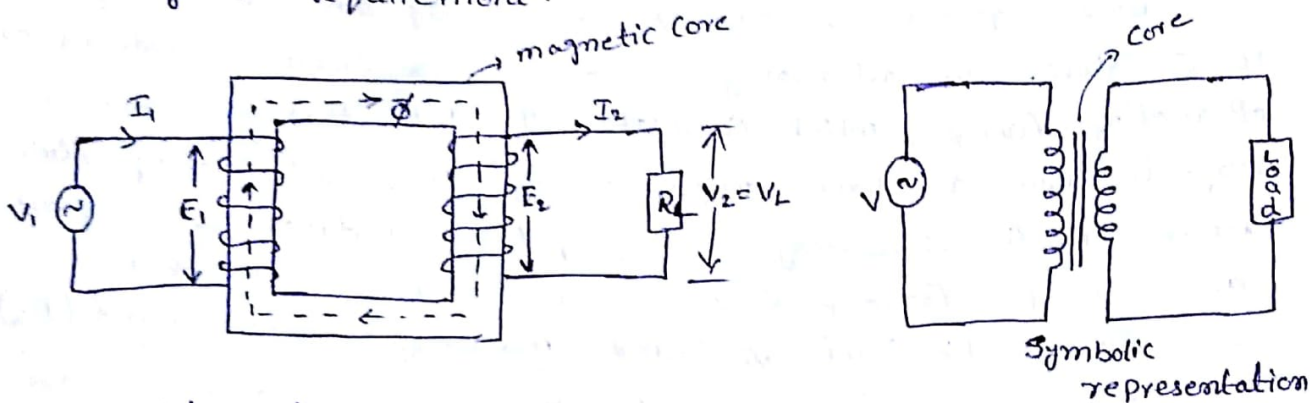 magnetic core
core
I1
ϕ
I2
V1
E1
E2
RL
V2=VL
V
Load
Symbolic
representation